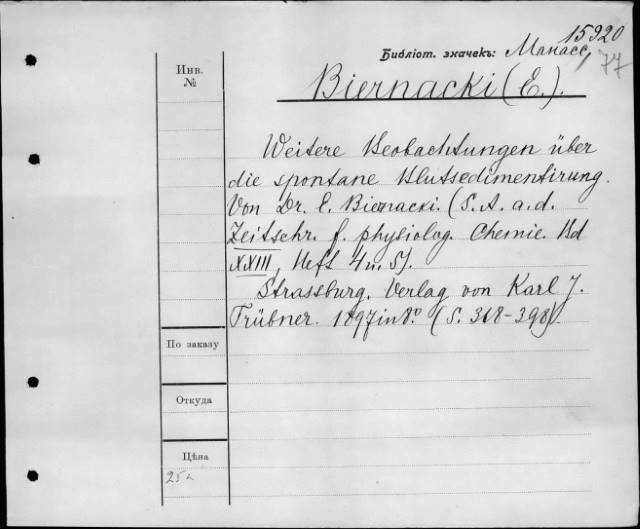 15920
Библіот. значекъ: Манасс,
77
Инв.
№
Biernacki (E.).
Weitere Beobachtungen über
die spontane Blutsedimentirung.
Von Dr. E. Biernacki. (S. A. a. d.
Zeitschr. f. physiolog. Chemie. Bd
XXIII, Heft 4 u. 5).
Strassburg. Verlag von Karl J.
Trübner. 1897 in 8º. (S. 368-398).
По заказу
Откуда
Цѣна
25